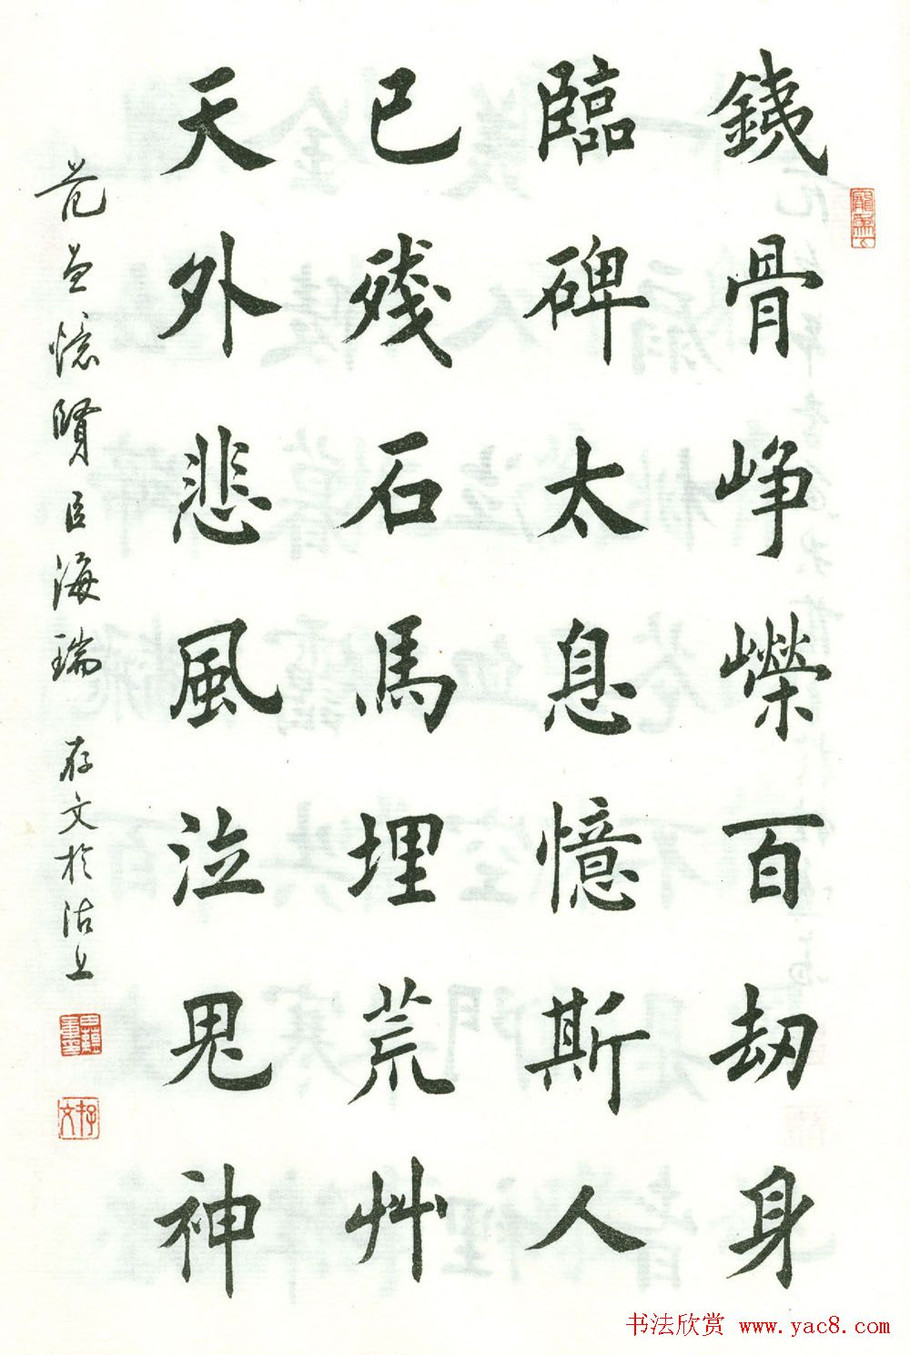 銕骨崢嶸百刼身
臨碑太息憶斯人
已殘石馬埋荒艸
天外悲風泣鬼神
范曾憶賢臣海瑞 存文於沽上
存文
书法欣赏 www.yac8.com